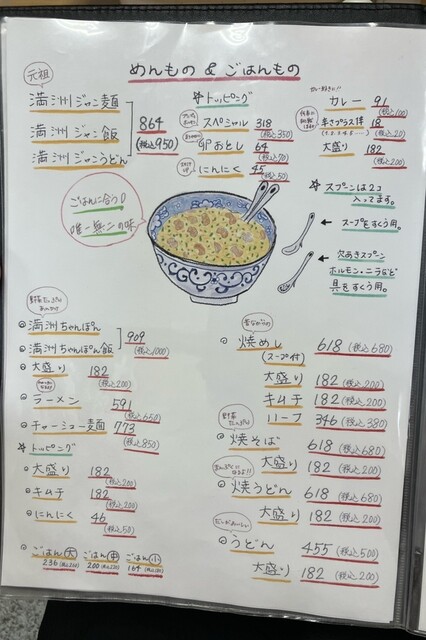 めんもの & ごはんもの
元祖
満洲ジャン麺
満洲ジャン飯
満洲ジャンうどん
864
(税込950)
トッピング
スペシャル 318
(税込350)
卵おとし 64
(税込70)
にんにく 45
(税込50)
カレー 91
(税込100)
辛さプラス1杯 18
(税込20)
大盛り 182
(税込200)
ごはんに合う!
唯一無二の味
スプーンは2コ
入ってます。
← スープをすくう用。
← 穴あきスプーン
ホルモン・ニラなど
具をすくう用。
野菜たっぷり
満洲ちゃんぽん
満洲ちゃんぽん飯
909
(税込1000)
大盛り 182
(税込200)
ラーメン 591
(税込650)
チャーシュー麺 773
(税込850)
トッピング
大盛り 182
(税込200)
キムチ 182
(税込200)
にんにく 46
(税込50)
ごはん(大) ごはん(中) ごはん(小)
236 200 164
昔ながらの
焼めし 618 (税込680)
(スープ付)
大盛り 182 (税込200)
キムチ 182 (税込200)
ハーフ 346 (税込380)
野菜たっぷり
焼そば 618 (税込680)
大盛り 182 (税込200)
焼うどん 618 (税込680)
大盛り 182 (税込200)
うどん 455 (税込500)
大盛り 182 (税込200)